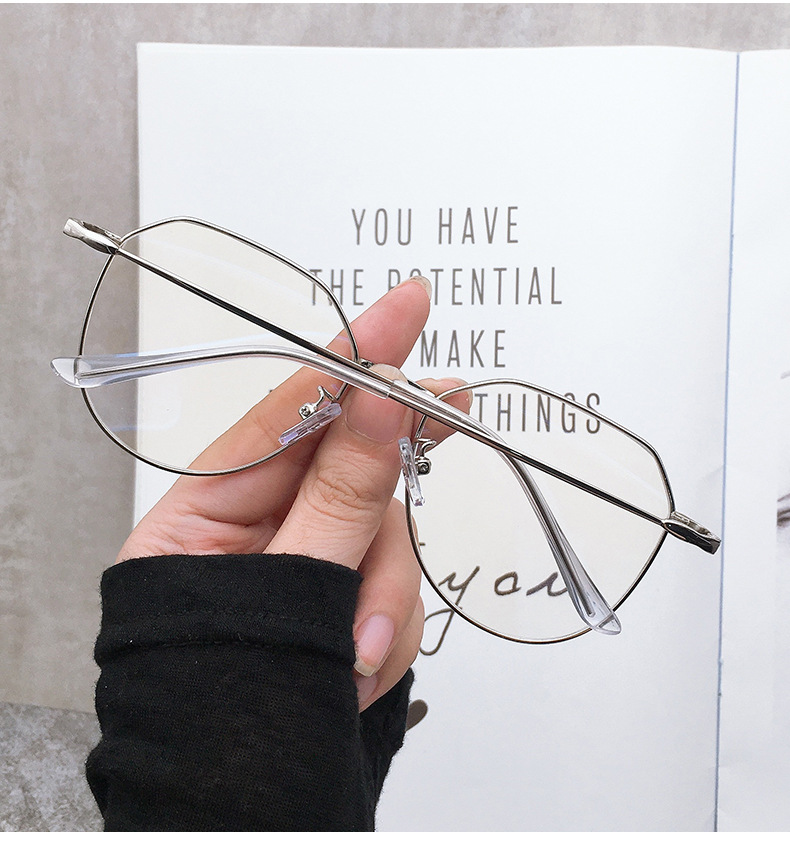 YOU HAVE
THE POTENTIAL
MAKE
THINGS
you